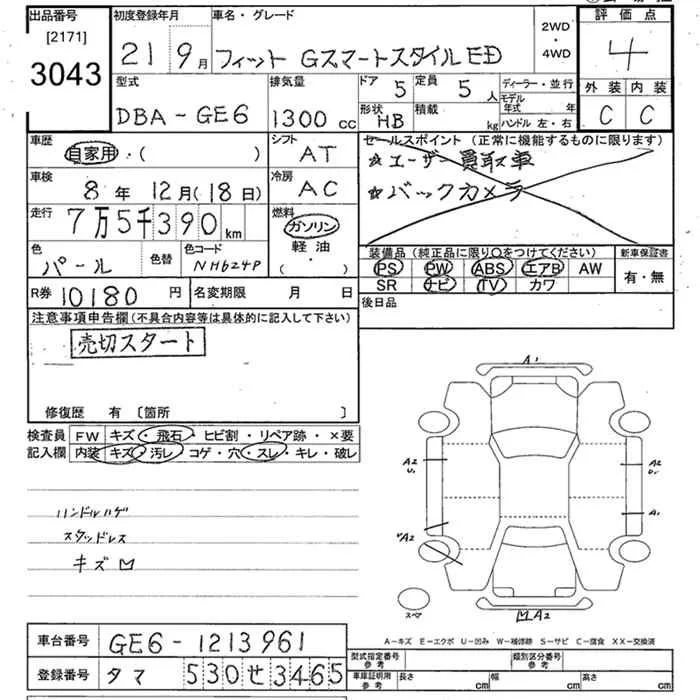 出品番号 初度登録年月 車名・グレード 評価点
[2171] 21 9月 フィット GスマートスタイルED 2WD・4WD 4
3043
型式 排気量 ドア 5 定員 5人 ディーラー・並行 外装 内装
DBA-GE6 1300cc 形状 HB 積載 kg モデル年式 年 C C
ハンドル 左・右
車歴 シフト セールスポイント (正常に機能するものに限ります)
自家用・( ) AT ★ユーザー買取車
車検 冷房 ☆バックカメラ
8年12月(18日) AC
走行 燃料
7万5千390km ガソリン・軽油・( )
色 色替 色コード 装備品 (純正品に限り○をつけてください) 新車保証書
パール NH624P PS PW ABS エアB AW 有・無
SR ナビ TV カワ
R券 10180円 名変期限 月 日 後日品
注意事項申告欄 (不具合内容等は具体的に記入して下さい)
売切スタート
修復歴 有 〔箇所 〕
検査員 FW キズ・飛石・ヒビ割・リペア跡・×要
記入欄 内装 キズ・汚レ・コゲ・穴・スレ・キレ・破レ
A1
A2 U1 A2
A1
A2
ハンドルハゲ
スタッドレス
キズ M
スペア
M A2
A-キズ E-エクボ U-凹み W-補修跡 S-サビ C-腐食 XX-交換済
車台番号 GE6-1213961
登録番号 タマ 530せ3465
型式指定番号 参考 類別区分番号 参考
車庫証明用 参考 長さ cm 幅 cm 高さ cm